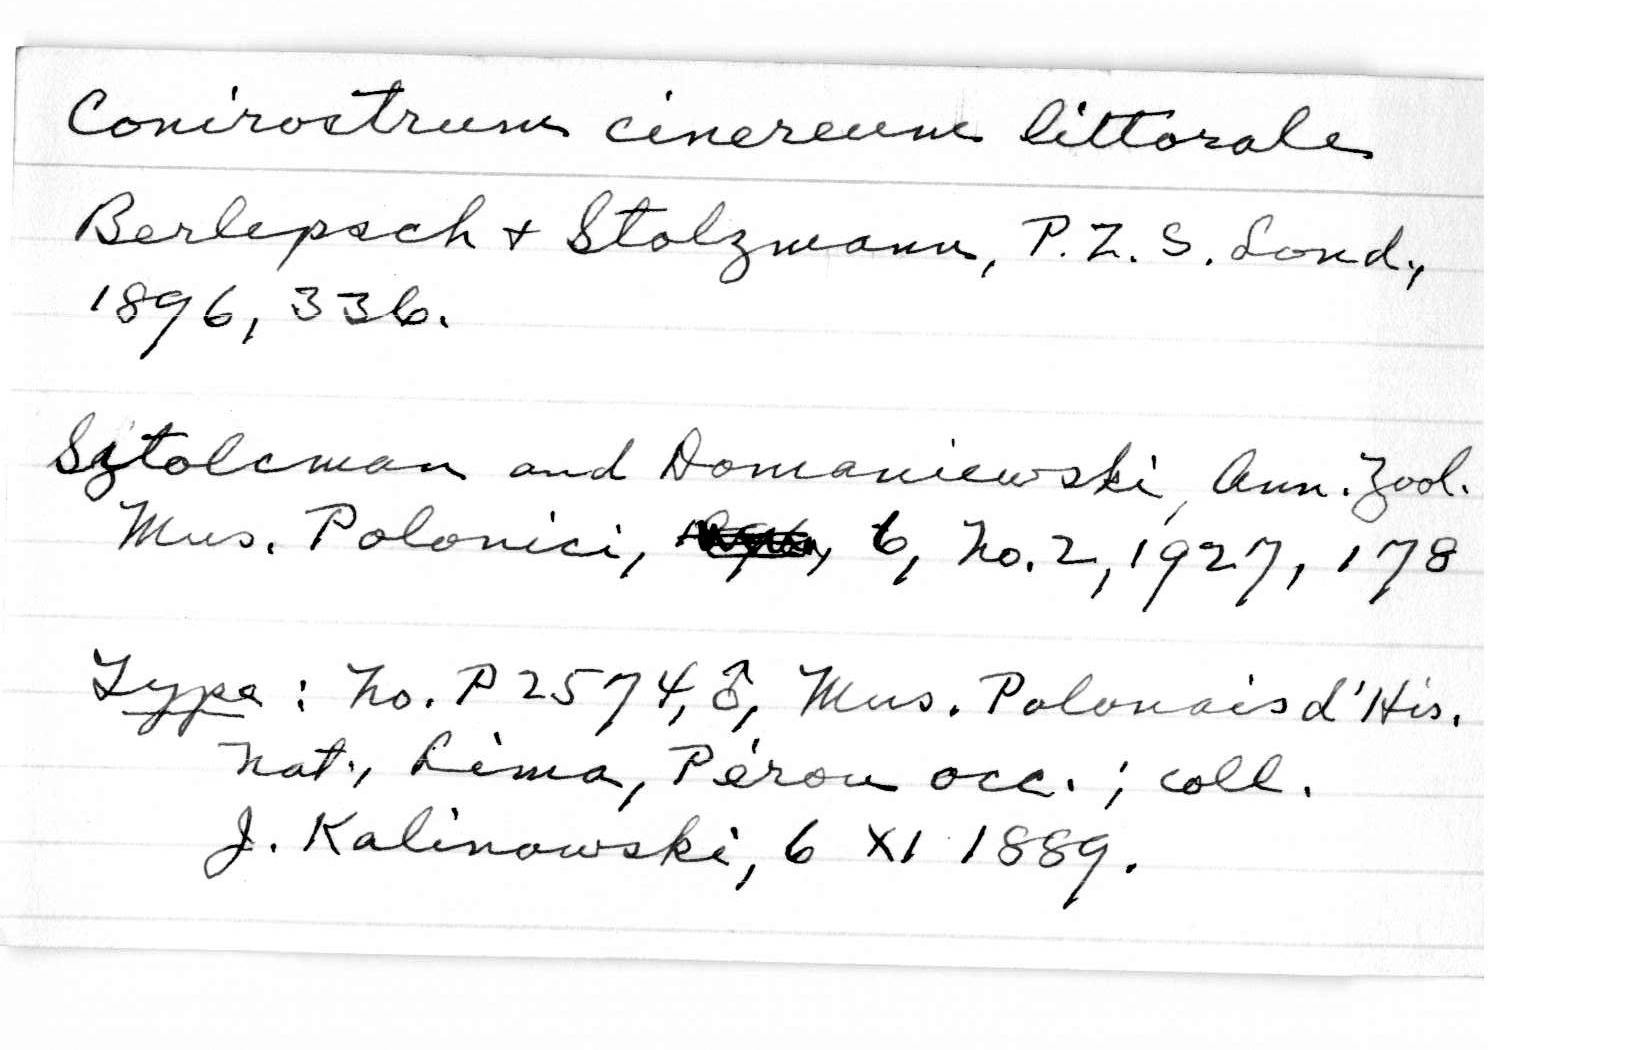 Conirostrum cinereum littorale
Berlepsch + Stolzmann, P.Z.S. Lond.,
1896, 336.
Sztolcman and Domaniewski, Ann. Zool.
Mus. Polonici, 6, No. 2, 1927, 178
Type: No. P2574, ♂, Mus. Polonais d'His.
Nat., Lima, Pérou occ.; coll.
J. Kalinowski, 6 XI 1889.